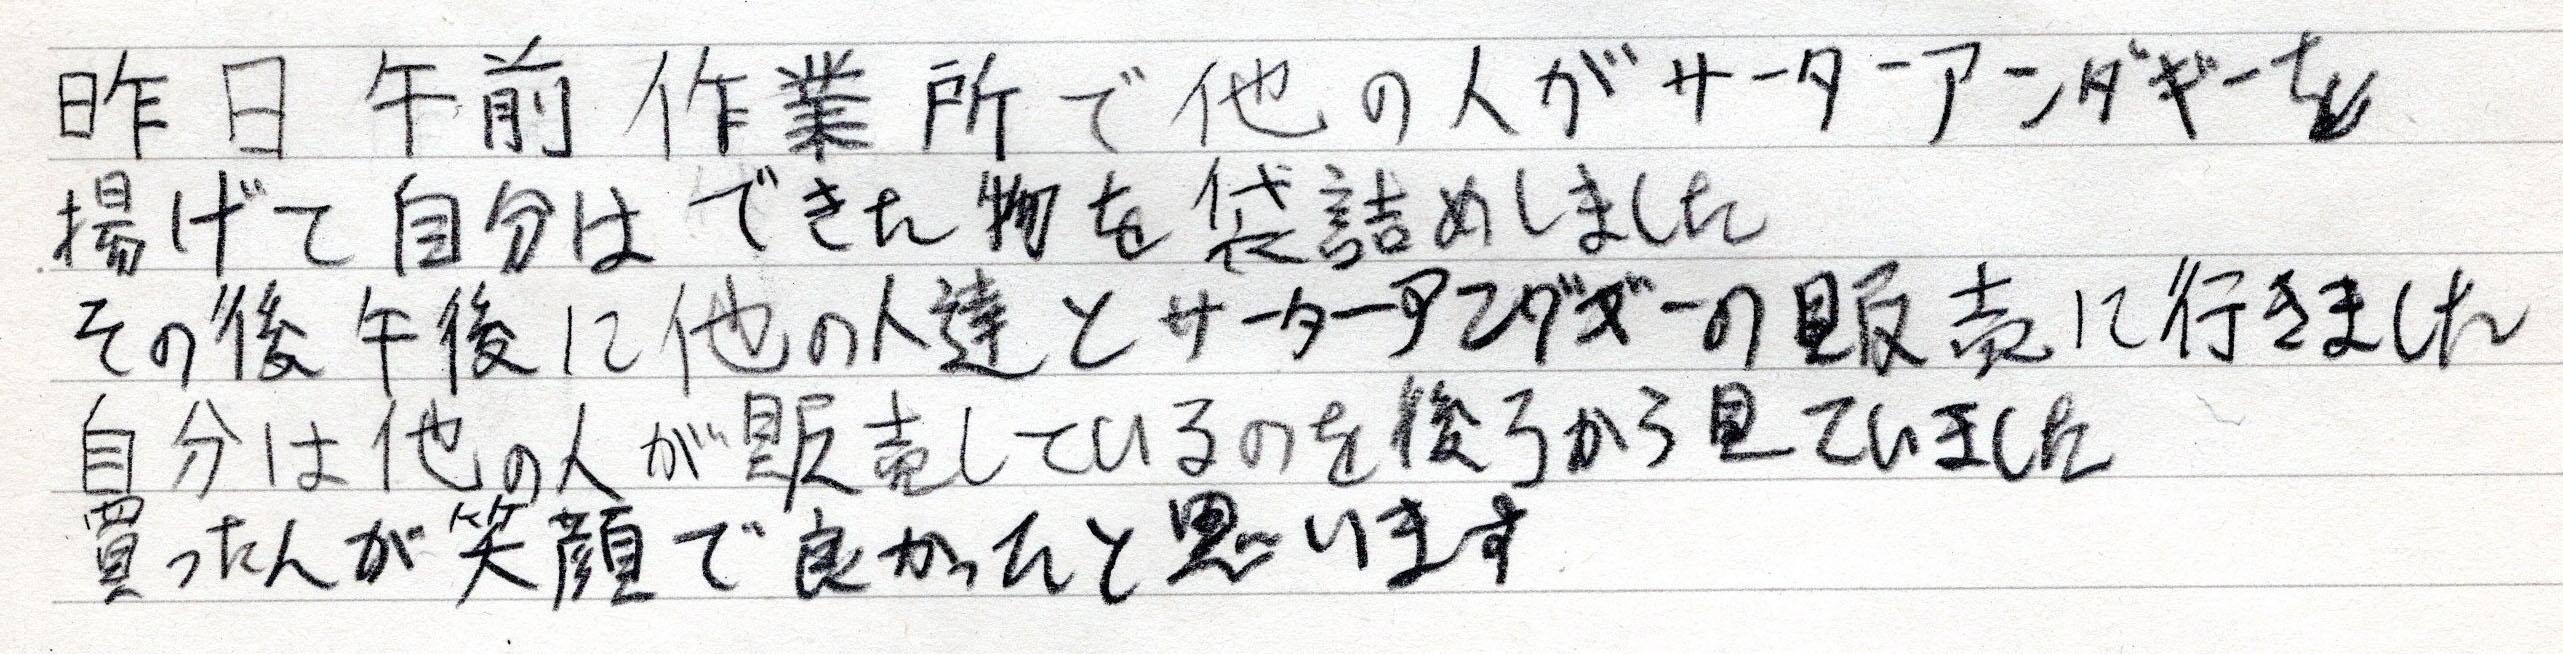 昨日午前作業所で他の人がサーターアンダギーを
揚げて自分はできた物を袋詰めしました
その後午後に他の人達とサーターアンダギーの販売に行きました
自分は他の人が販売しているのを後ろから見ていました
買った人が笑顔で良かったと思います